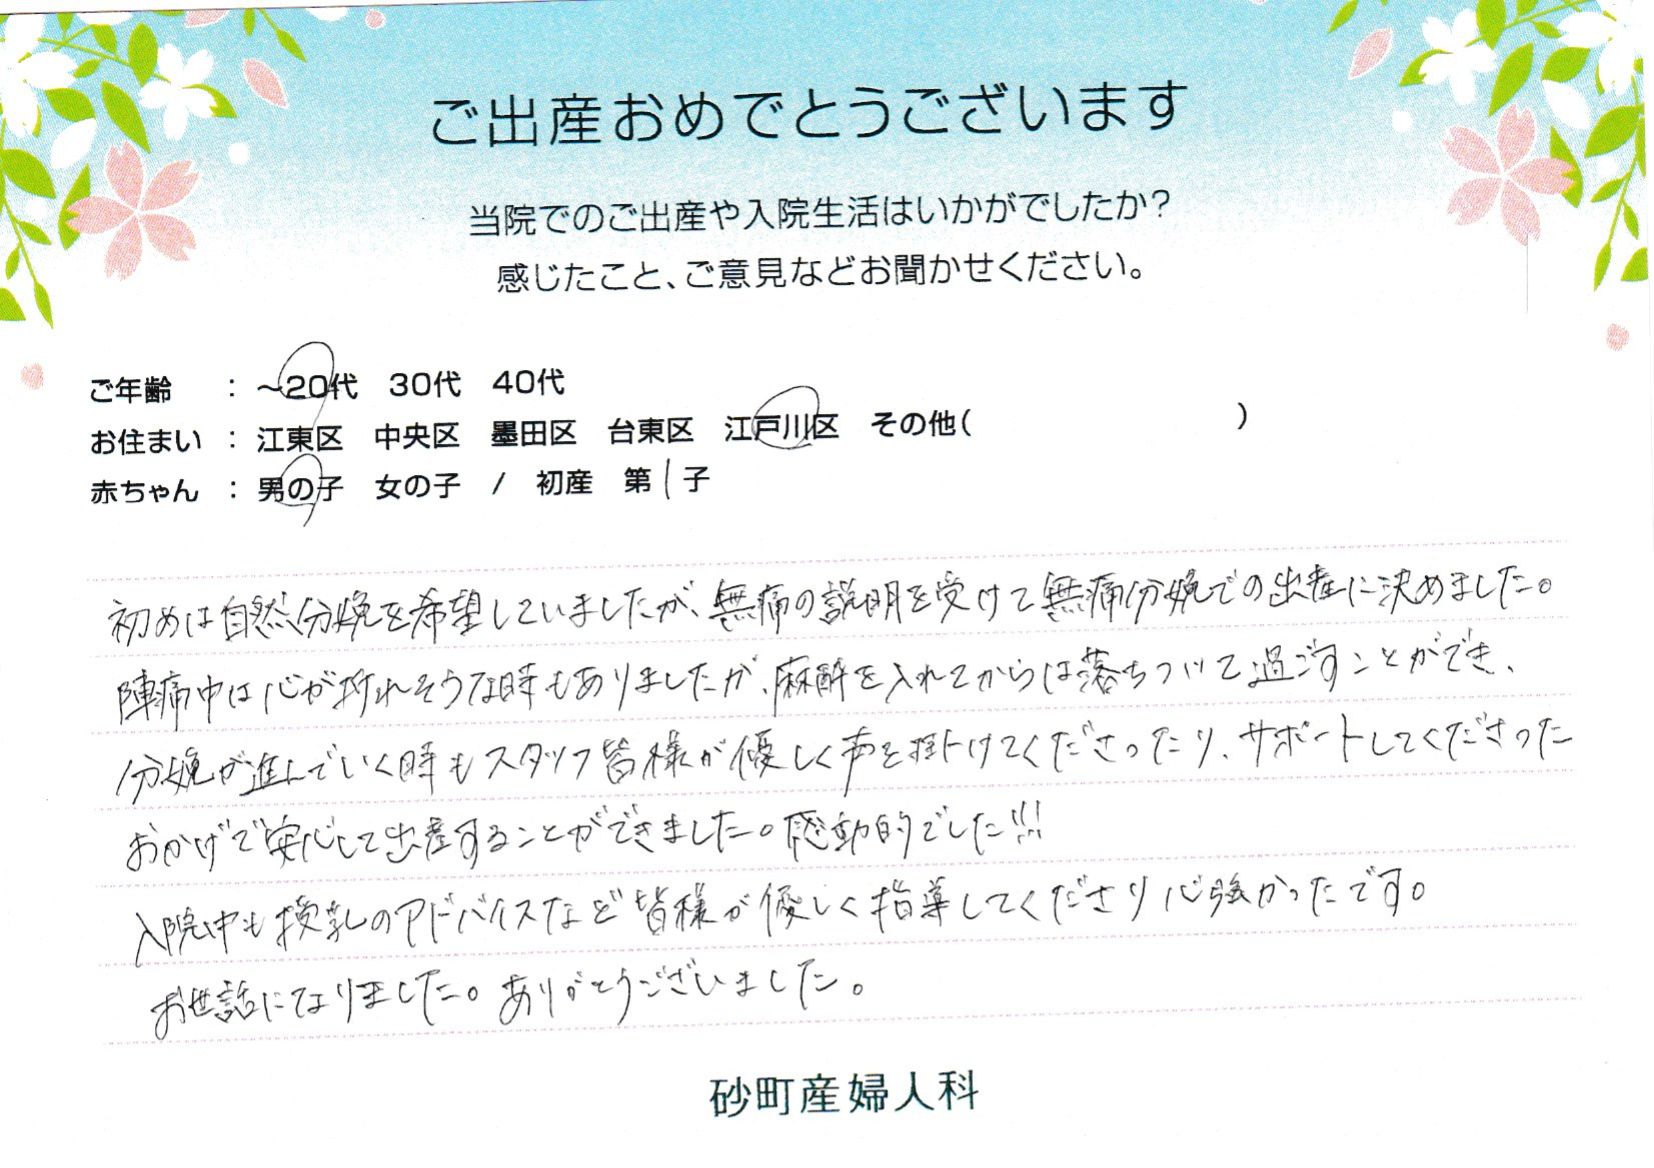 ご出産おめでとうございます
当院でのご出産や入院生活はいかがでしたか?
感じたこと、ご意見などお聞かせください。
ご年齢 : ~20代 30代 40代
お住まい : 江東区 中央区 墨田区 台東区 江戸川区 その他( )
赤ちゃん : 男の子 女の子 / 初産 第1子
初めは自然分娩を希望していましたが、無痛の説明を受けて無痛分娩での出産に決めました。
陣痛中は心が折れそうな時もありましたが、麻酔を入れてからは落ちついて過ごすことができ、
分娩が進んでいく時もスタッフ皆様が優しく声を掛けてくださったり、サポートしてくださった
おかげで安心して出産することができました。感動的でした!!!
入院中も授乳のアドバイスなど皆様が優しく指導してくださり心強かったです。
お世話になりました。ありがとうございました。
砂町産婦人科